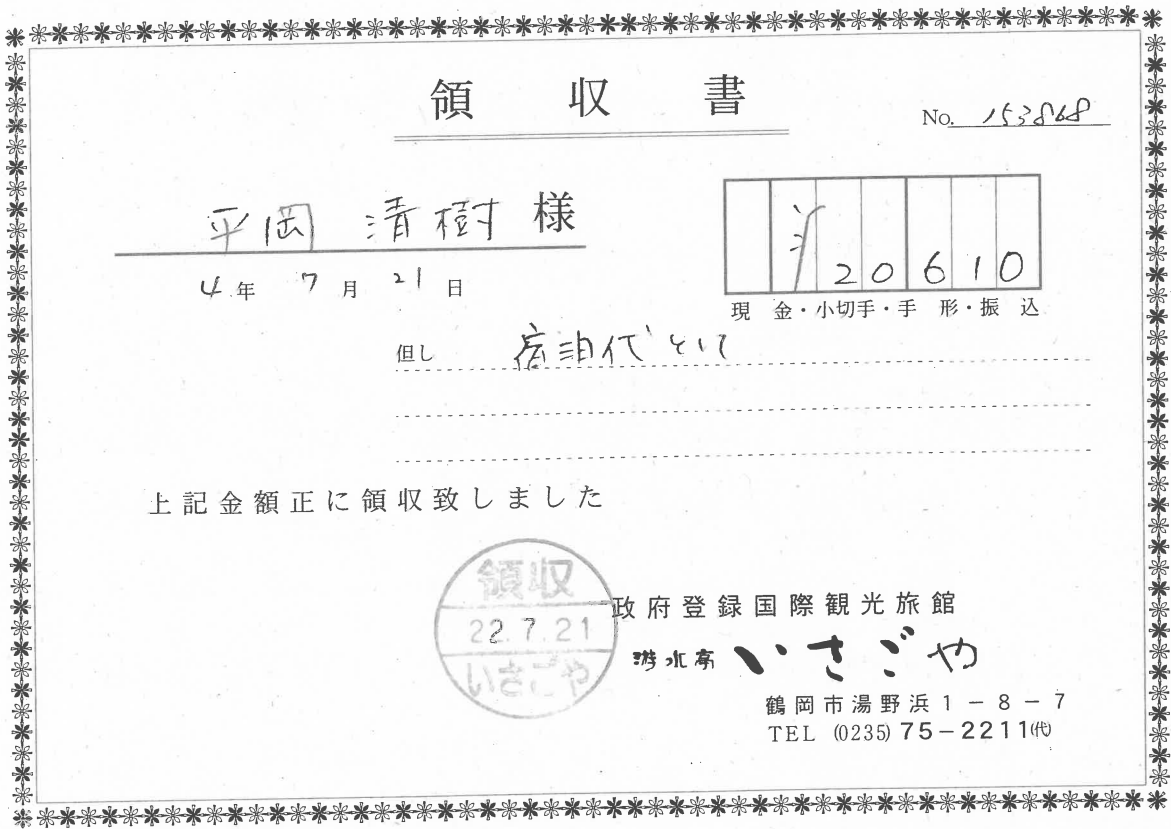 領収書
No. 153868
平岡 清樹 様
¥20610
4年 7月 21日
現金・小切手・手形・振込
但し 宿泊代として
上記金額正に領収致しました
領収
22.7.21
いさごや
政府登録国際観光旅館
游水亭 いさごや
鶴岡市湯野浜1-8-7
TEL (0235) 75-2211(代)